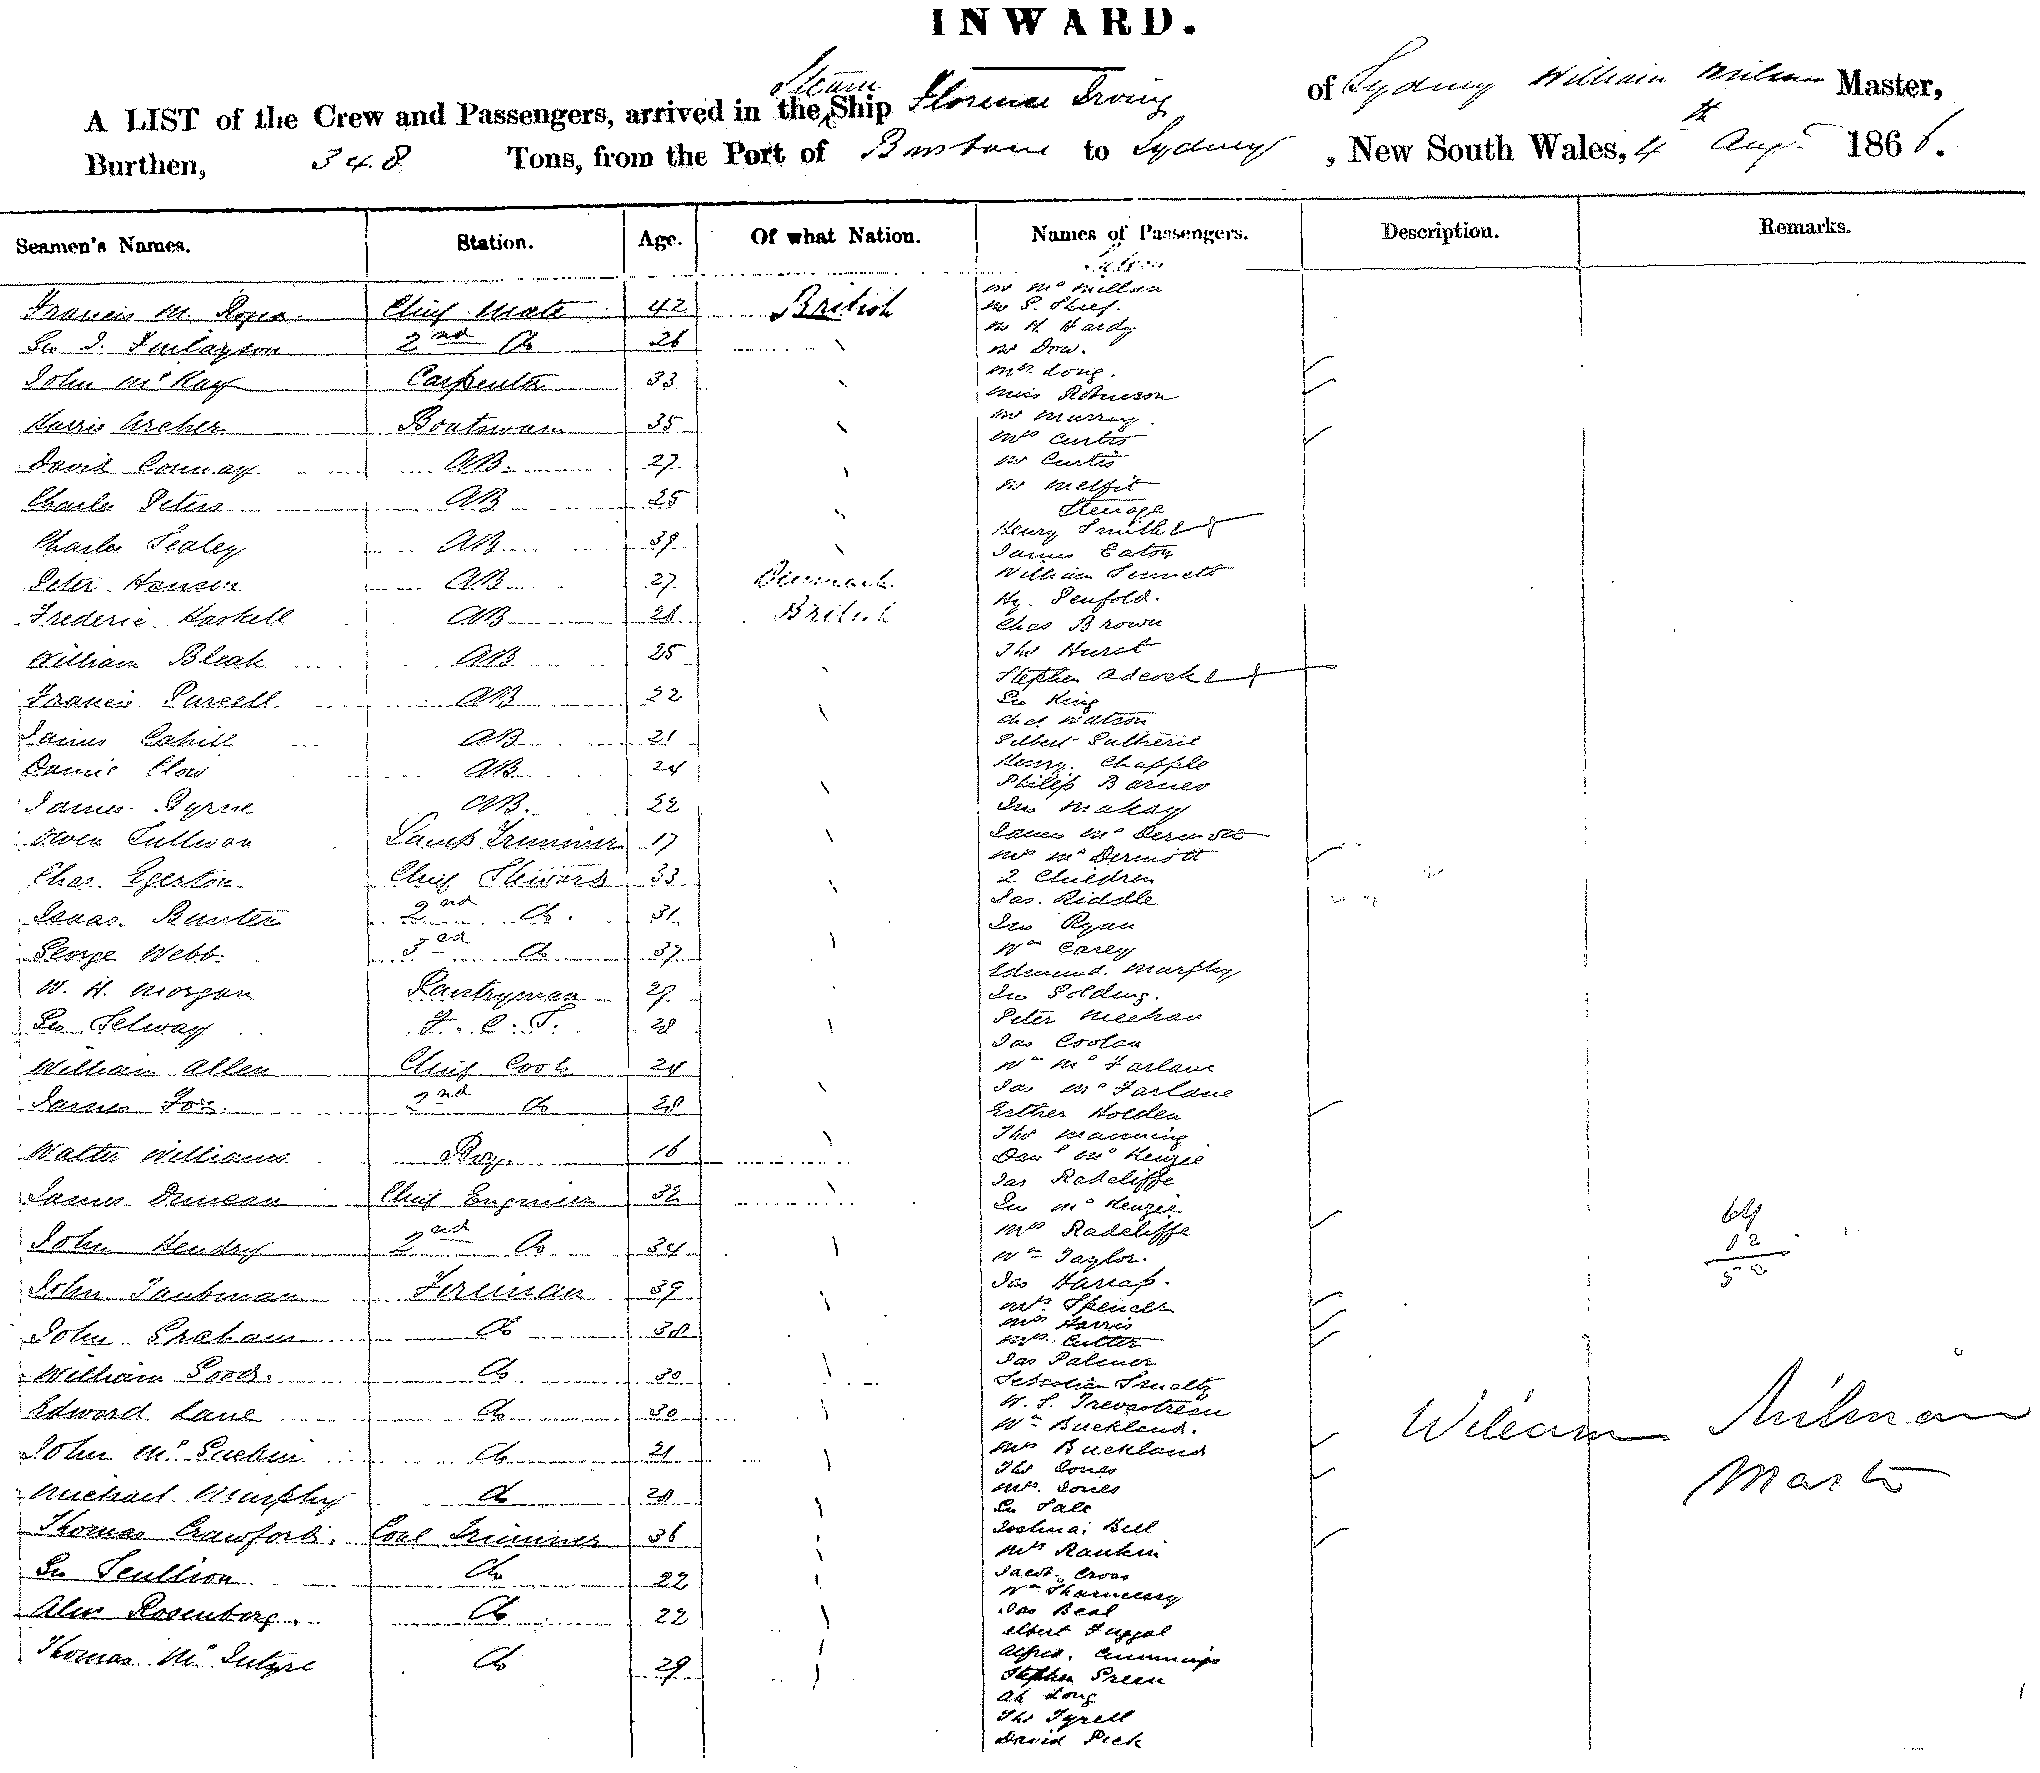 INWARD.
A LIST of the Crew and Passengers, arrived in the Steam Ship Florence Irving of Sydney William Milman Master,
Burthen, 348 Tons, from the Port of Brisbane to Sydney, New South Wales, 4th Augt 1866.
Seamen's Names. Station. Age. Of what Nation. Names of Passengers. Description. Remarks.
Saloon
Francis M. Chief Mate 42 British
Geo D. Finlayson 2nd Do 26
John McKay Carpenter 33
Harris Archer Boatswain 35
David Conway AB. 27
Charles Peters AB 25
Charles Sealey AB 39
Peter Hansen AB 27 Denmark
Frederic Haskell AB 28 British
William Bleak AB 25
Francis Purcell AB 22
James Cahill AB 21
AB 24
James Byrne AB. 22
Owen Sullivan Lamp Trimmer 17
Chas. Egerton Chief Steward 33
Isaac Bunter 2nd Do. 31
George Webb. 3rd Do 37
W. H. Morgan Pantryman 29
Geo Selway F. C. S. 28
William Allen Chief Cook 28
James Fox. 2nd Do 28
Walter Williams Boy 16
James Duncan Chief Engineer 32
John Hendry 2nd Do 34
John Taubman Fireman 39
John Graham Do 38
William Good. Do 30
Edward Lane Do 30
John Mc Do 21
Michael Murphy Do 28
Thomas Crawford. Coal Trimmer 36
Geo Scullion Do 22
Alex Rosenberg. Do 22
Thomas McIntyre Do 29
Mr McMillan
Mr H. Hardy
Mr Dow.
Mrs Long.
Miss Robinson
Mr Murray.
Mrs Curtis
Mr Curtis
Steerage
Henry Smith
James Eaton
William Sennett
Hy. Penfold.
Chas Brown
Thos Hurst
Stephen Adcock
Geo King
Watson
Henry Chapple
Philip Barnes
Jno Makay
James McDermott
Mrs McDermott
2 Children
Jas. Riddle
Jno Ryan
Wm Carey
Edmund Murphy
Jno Golding.
Peter Meehan
Jas Coolan
Wm McFarlane
Jas McFarlane
Esther Holden
Thos Manning
Danl McKenzie
Jas Radcliffe
Jno McKenzie
Mrs Radcliffe
Wm Taylor.
Jas Harrap.
Mrs Spencer
Mrs Harris
Mrs Cutter
Jas Palmer
W. S.
Wm Buckland.
Mrs Buckland
Thos Jones
Mrs Jones
Geo Sale
Joshua Bell
Mrs Rankin
Jacob Cross
Wm
Jas Beal
Albert
Alfred. Cummings
Stephen Green
Ah Long
Thos Tyrell
David Peck
64
12
William Milman
Master